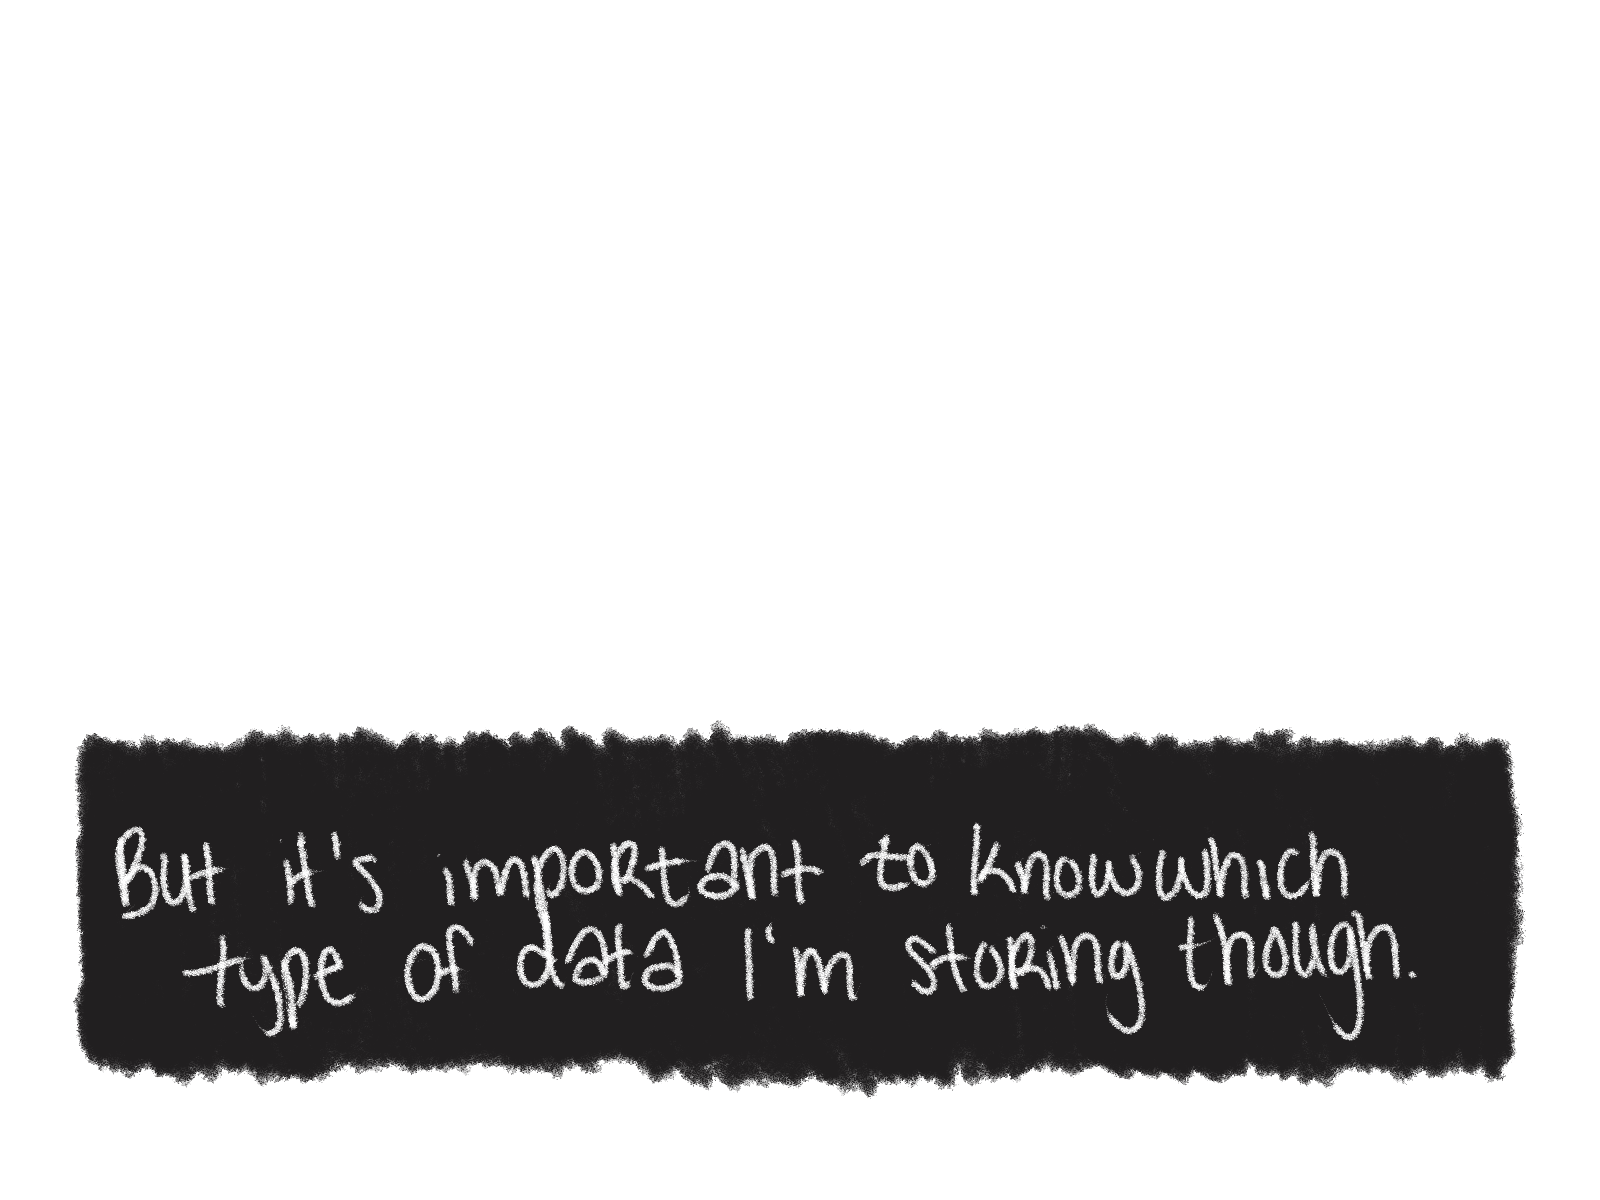 But it's important to know which
type of data I'm storing though.